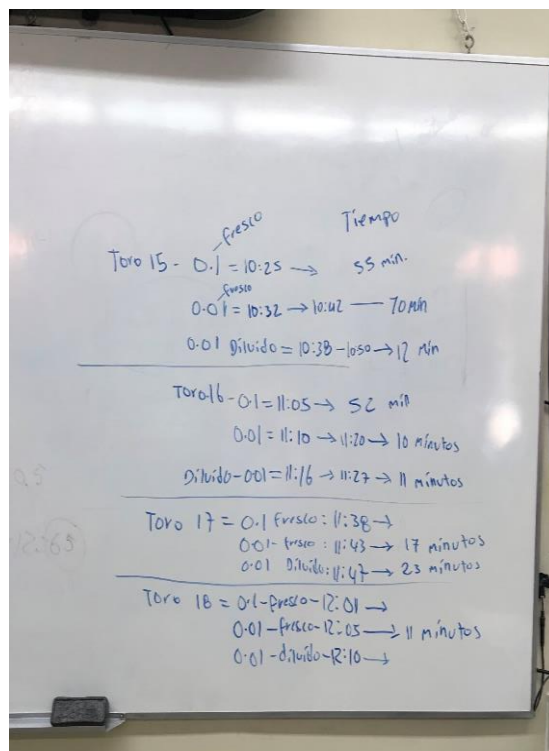 fresco
Tiempo
Toro 15 - 0.1 = 10:25 → 55 min.
fresco
0.01 = 10:32 → 10:42 — 70 min
0.01 Diluido = 10:38-10:50 → 12 min
Toro16 - 0.1 = 11:05 → 52 min
0.01 = 11:10 → 11:20 → 10 minutos
Diluido-001 = 11:16 → 11:27 → 11 minutos
Toro 17 = 0.1 fresco: 11:38 →
0.01- fresco: 11:43 → 17 minutos
0.01 Diluido: 11:47 → 23 minutos
Toro 18 = 0.1-fresco-12:01 →
0.01-fresco-12:05 → 11 minutos
0.01-diluido-12:10 →